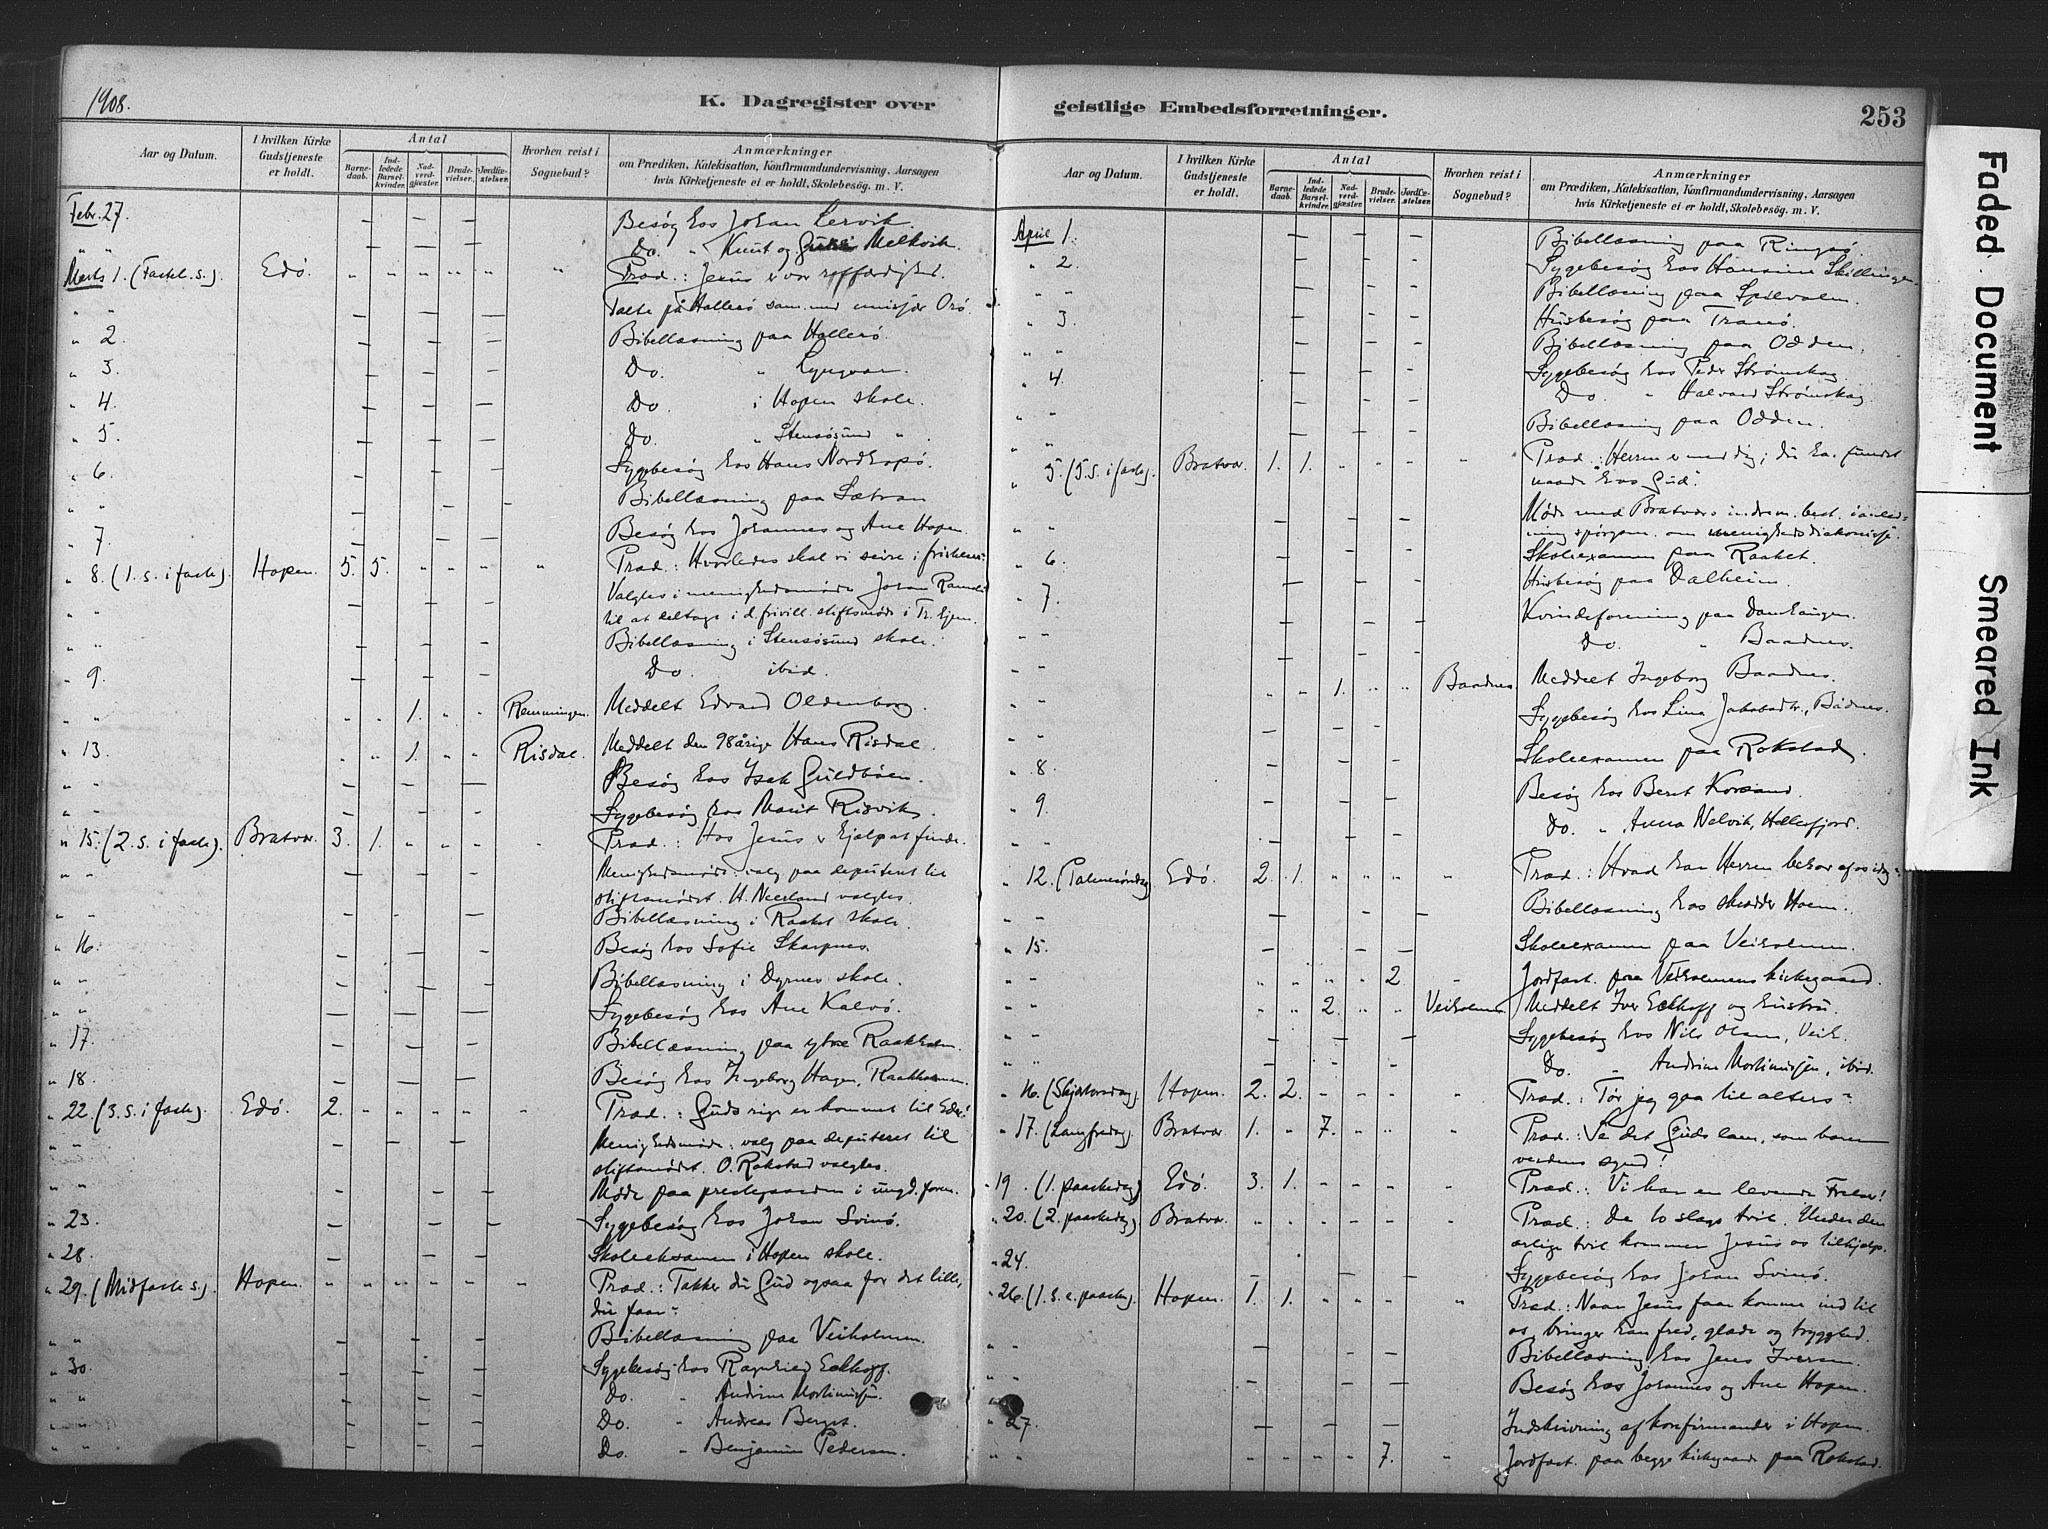 1908.
K. Dagregister over geistlige Embedsforretninger.
253
Aar og Datum.
I hvilken Kirke Gudstjeneste er holdt.
Antal
Barnedaab.
Indledede Barselkvinder.
Nadverdgjæster.
Brudevielser.
Jordfæstelser.
Hvorhen reist i Sognebud?
Anmærkninger
om Prædiken, Katekisation, Konfirmandundervisning, Aarsagen
hvis Kirketjeneste ei er holdt, Skolebesøg. m. V.
Febr. 27. – – – Besøg hos Johan Lervik
" " – – – Do. " Knut og Guri Melkvik.
Marts 1. (Fastel. s.). Edø. " " " " " " Præd.: Jesus er vor retfærdighed.
" " – – – Talte på Hallerø sam. med
" 2. – – – Bibellæsning paa Hallerø.
" 3. – – – Do. " Lyngvær.
" 4. – – – Do. i Hopen skole.
" 5. – – – Do. " Stensøsund "
" 6. – – – Sygebesøg hos Hans Nordhopø.
" " – – – Bibellæsning paa Sætran
" 7. – – – Besøg hos Johannes og Ane Hopen.
" 8. (1. s. i faste). Hopen. 5. 5. " " " " Præd.: Hvorledes skal vi seire i fristelsen?
" " – – – Valgtes i menighedsmøde Johan
til at deltage i d. frivill. stiftsmøde i Tr.hjem.
" " – – – Bibellæsning i Stensøsund skole.
" 9. – – – Do. ibid.
" " " " 1. " " Remmingen. Meddelt Edvard Oldenborg.
" 13. " " 1. " " Risdal. Meddelt den 98årige Hans Risdal.
" " – – – Besøg hos Isak Guldbøen.
" " – – – Sygebesøg hos Marit Risvik.
" 15. (2. s. i faste). Bratvær. 3. 1. " " " " Præd.: Hos Jesus er hjælp at finde.
" " – – – Menighedsmøde: valg paa deputeret til
stiftsmødet. H. Neerland valgtes.
" " – – – Bibellæsning i Raaket skole.
" 16. – – – Besøg hos Sofie Skarpnes.
" " – – – Bibellæsning i Dyrnes skole.
" " – – – Sygebesøg hos Ane Kalvø.
" 17. – – – Bibellæsning paa ytre Raakholm.
" 18. – – – Besøg hos Ingeborg Hagen, Raakholmen.
" 22. (3. s. i faste). Edø. 2. " " " " " Præd.: Guds rige er kommet til Eder!
" " – – – Menighedsmøde: valg paa deputeret til
stiftsmødet. O. Rokstad valgtes.
" " – – – Møde paa prestegaarden i ungd. foren.
" 23. – – – Sygebesøg hos Johan Svinø.
" 28. – – – Skoleeksamen i Hopen skole.
" 29. (Midfaste s.). Hopen. " " " " " " Præd.: Takker du Gud ogsaa for det lille,
du faar?
" " – – – Bibellæsning paa Veiholmen.
" 30. – – – Sygebesøg hos Ragnhild Eckhoff.
" " – – – Do. " Andrine Mortinussen.
" " – – – Do. " Andreas Berget.
" " – – – Do. " Benjamin Pedersen.
Aar og Datum.
I hvilken Kirke Gudstjeneste er holdt.
Antal
Barnedaab.
Indledede Barselkvinder.
Nadverdgjæster.
Brudevielser.
Jordfæstelser.
Hvorhen reist i Sognebud?
Anmærkninger
om Prædiken, Katekisation, Konfirmandundervisning, Aarsagen
hvis Kirketjeneste ei er holdt, Skolebesøg. m. V.
April 1. – – – Bibellæsning paa Ringsø.
" 2. – – – Sygebesøg hos Hansine Skillingen.
" " – – – Bibellæsning paa Spilvalen.
" 3. – – – Husbesøg paa Tranø.
" " – – – Bibellæsning paa Odden.
" 4. – – – Sygebesøg hos Peder Strømskag
– – – Do. " Halvard Strømskag.
" " – – – Bibellæsning paa Odden.
" 5. (5. s. i faste). Bratvær. 1. 1. " " " " Præd.: "Herren er med dig; du har fundet
naade hos Gud."
" " – – – Møde med Bratværs indrem. best. i anled-
ning spørgsm. om menighedsdiakonisse.
" 6. – – – Skoleexamen paa Raaket.
– – – Husbesøg paa Dalheim.
" 7. – – – Kvindeforening paa
" " – – – Do. " Baadnes.
" " " " 1. " " Baadnes. Meddelt Ingeborg Baadnes.
" " – – – Sygebesøg hos Lina Jakobsdtr., Bådnes.
" 8. – – – Skoleexamen paa Rokstad.
" 9. – – – Besøg hos Bernt Korsand.
" " – – – Do. " Anna Nelvik, Hellesfjord.
" 12. (Palmesøndag) Edø. 2. 1. " " " " Præd.: Hvad har Herren behov af os idag?
" " – – – Bibellæsning hos skrædder Hoem.
" 15. – – – Skoleexamen paa Veiholmen.
" " " " " " 2 " Jordfæst. paa Veiholmens kirkegaard.
" " " " 2. " " Veiholmen. Meddelt Iver Eckhoff og hustru.
" " – – – Sygebesøg hos Nils Olsen, Veih.
" " – – – Do. " Andrine Mortinussen, ibid.
" 16. (Skjærtorsdag). Hopen. 2. 2. " " " " Præd.: Tør jeg gaa til alters?
" 17. (Langfredag). Bratvær. 1. " 7. " " " Præd.: Se det Guds lam, som borer
verdens synd!
" 19. (1. paaskedag) Edø. 3. 1. " " " " Præd.: Vi har en levende Frelser!
" 20. (2. paaskedag) Bratvær. " " " " " " Præd.: De to slags tvil. Under den
ærlige tvil kommer Jesus os tilhjælp.
" 24. – – – Sygebesøg hos Johan Svinø.
" 26. (1. s. e. paaske). Hopen. 1. 1. " " " " Præd.: Naar Jesus faar komme ind til
os, bringer han fred, glæde og tryghed.
" " – – – Bibellæsning hos Jens Iversen.
" " – – – Besøg hos Johannes og Ane Hopen.
" 27. – – – Indskrivning af konfirmander i Hopen.
" " " " " " 7. " Jordfæst. paa begge kirkegaarde paa Rokstad.
Faded Document
Smeared Ink